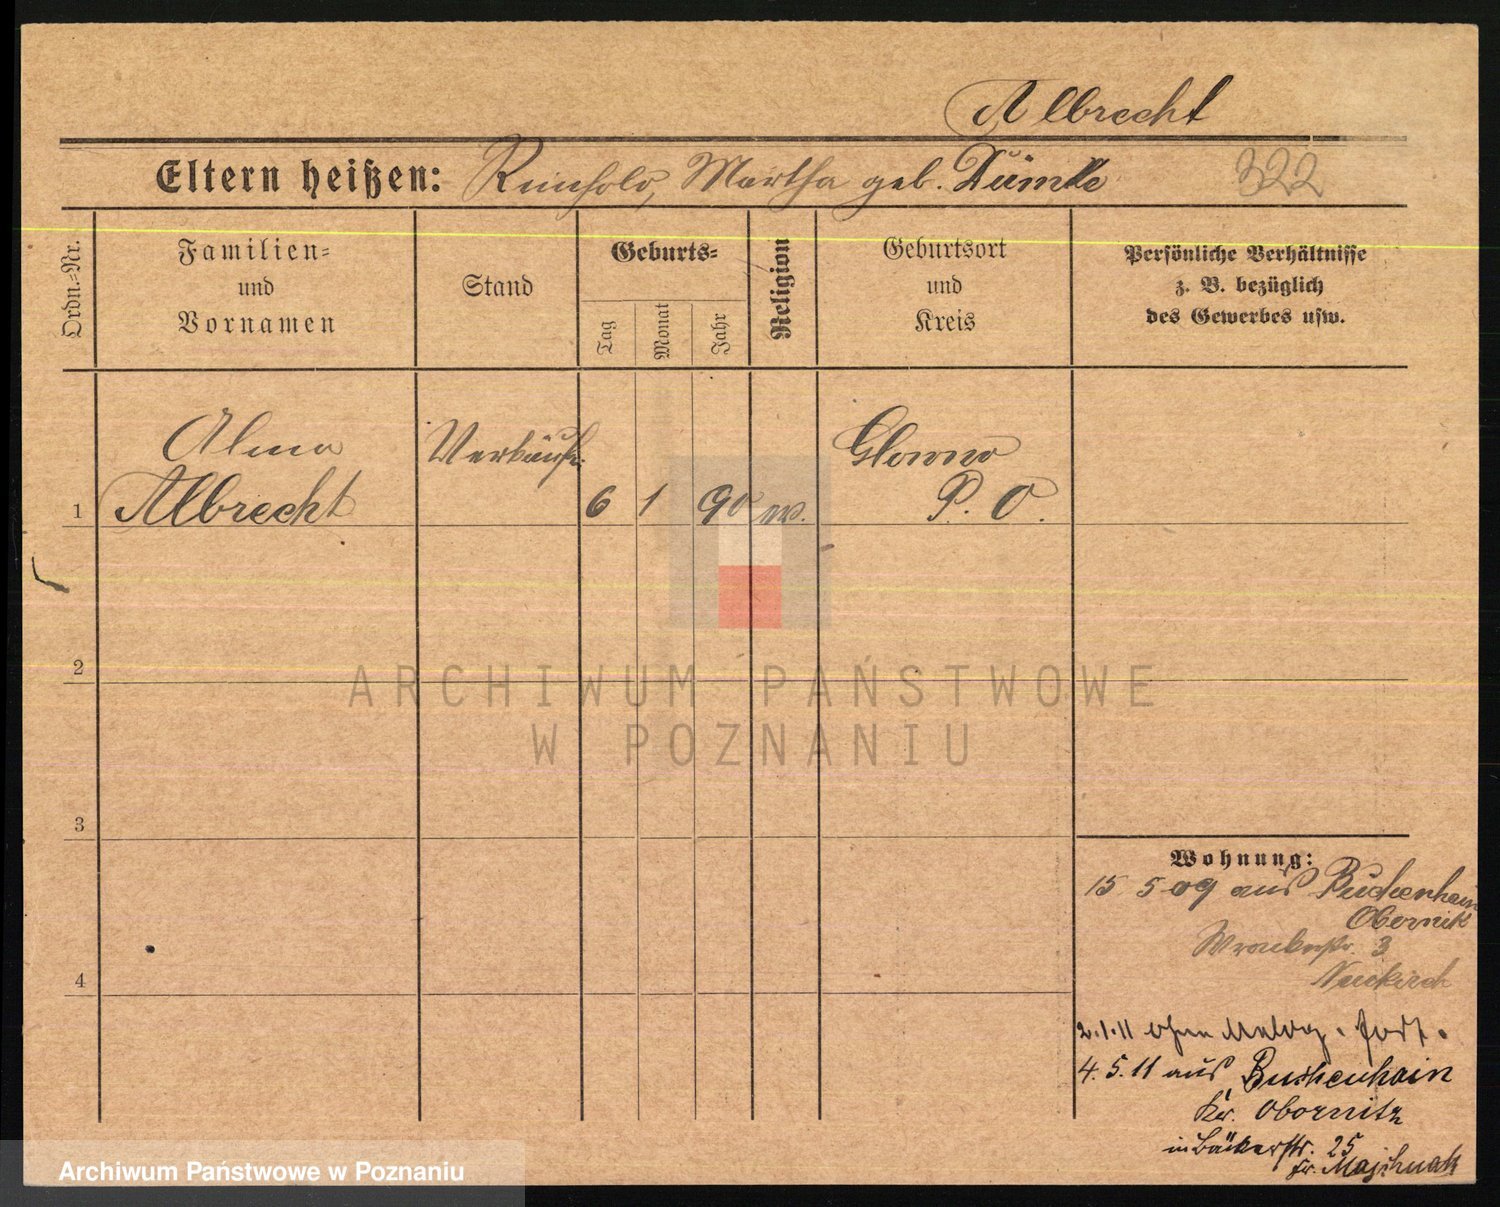 Albrecht
Eltern heißen: Reinhold, Martha geb. Dümke
322
Ordn.-Nr.
Familien-
und
Vornamen
Stand
Geburts-
Tag
Monat
Jahr
Religion
Geburtsort
und
Kreis
Persönliche Verhältnisse
z. B. bezüglich
des Gewerbes usw.
Alma
Albrecht
Verkäuf.
1
6 1 90
Glowno
P. O.
2
3
4
Wohnung:
15 5 09 aus Buchenhain
Obernik
Wronkerstr. 3
Neukirch
2.1.11 ohne Meldg. fort.
4.5.11 aus Buchenhain
Kr. Obornitz
in Bäckerstr. 25
ARCHIWUM PAŃSTWOWE
W POZNANIU
Archiwum Państwowe w Poznaniu